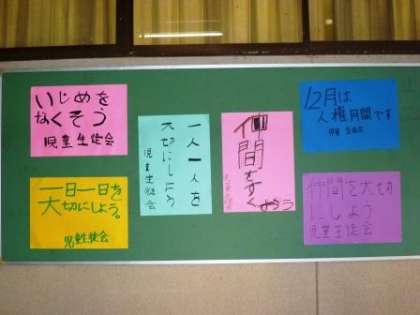 いじめを
なくそう
児童生徒会
一日一日を
大切にしよう。
児童生徒会
一人一人を
大切にしよう
児童生徒会
仲間をすく
おう
12月は
人権月間です
仲間を大切
にしよう
児童生徒会